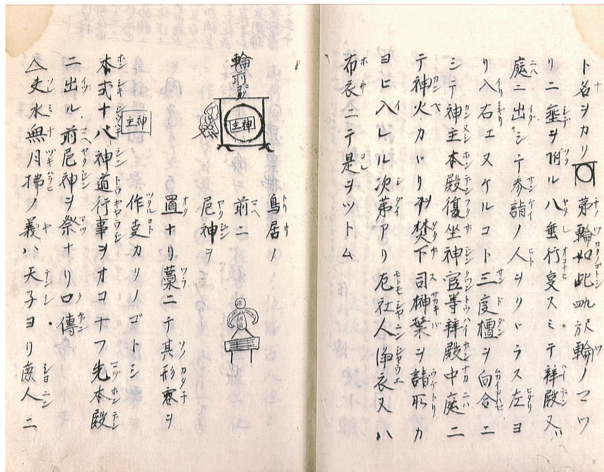 ト名ヲカリ茅輪如此於輪ノマワ
リニ垂ヲ附ル八垂行夏スミテ拝殿又ハ
庭ニ出シテ参詣ノ人ヲクヾラス左ヨ
リ入右エヌケルコト三度檀ヲ向合ニ
シテ神主本殿復坐神官等拝殿中庭ニ
テ神火カヾリヲ焚下司榊葉ヲ請取カ
ヨヒ入レル次第アリ厄社人浄衣又ハ
布衣ニテ是ヲツトム
神主
鳥居ノ
前ニ
厄神ヲ
置ナリ藁ニテ其形
神主
本式十八神道行事ヲオコナフ先本殿
ニ出ル前厄神ヲ祭ナリ口傳
水無月ノ義ハ天子ヨリ庶人ニ